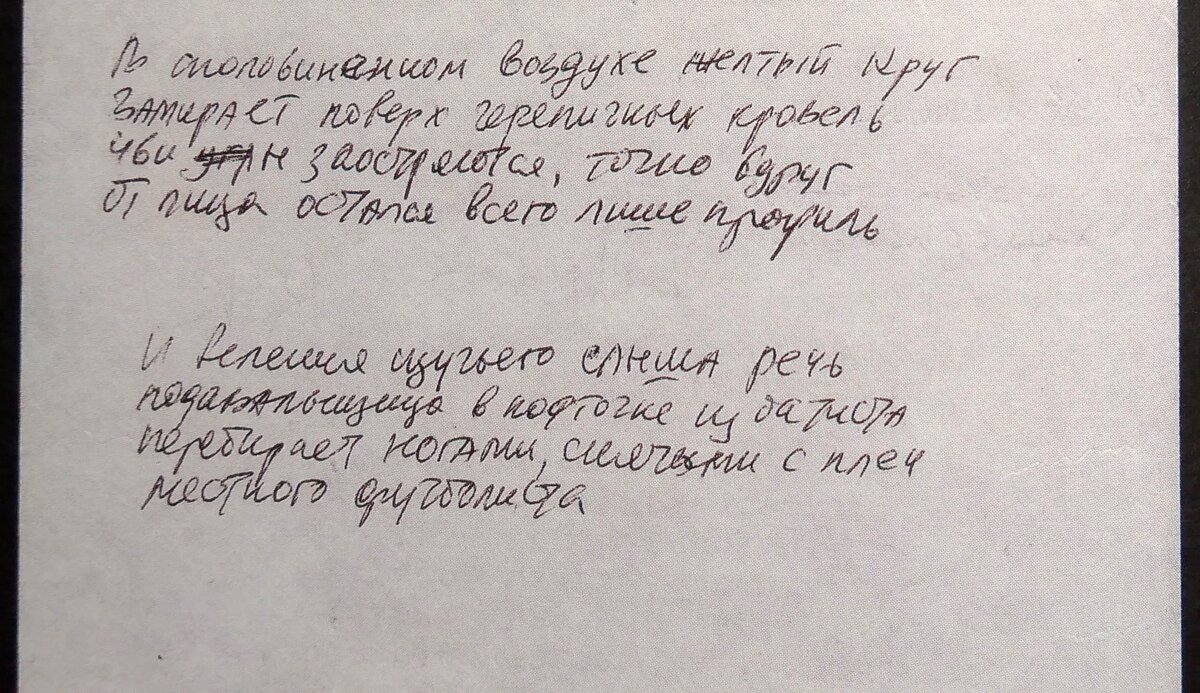 В споловиненном воздухе желтый круг
Замирает поверх черепичных кровель
чьи углы заостряются, точно вдруг
От лица остался всего лишь профиль
И веления щучьего слыша речь
подавальщица в кофточке из батиста
перебирает ногами, снятыми с плеч
местного футболиста